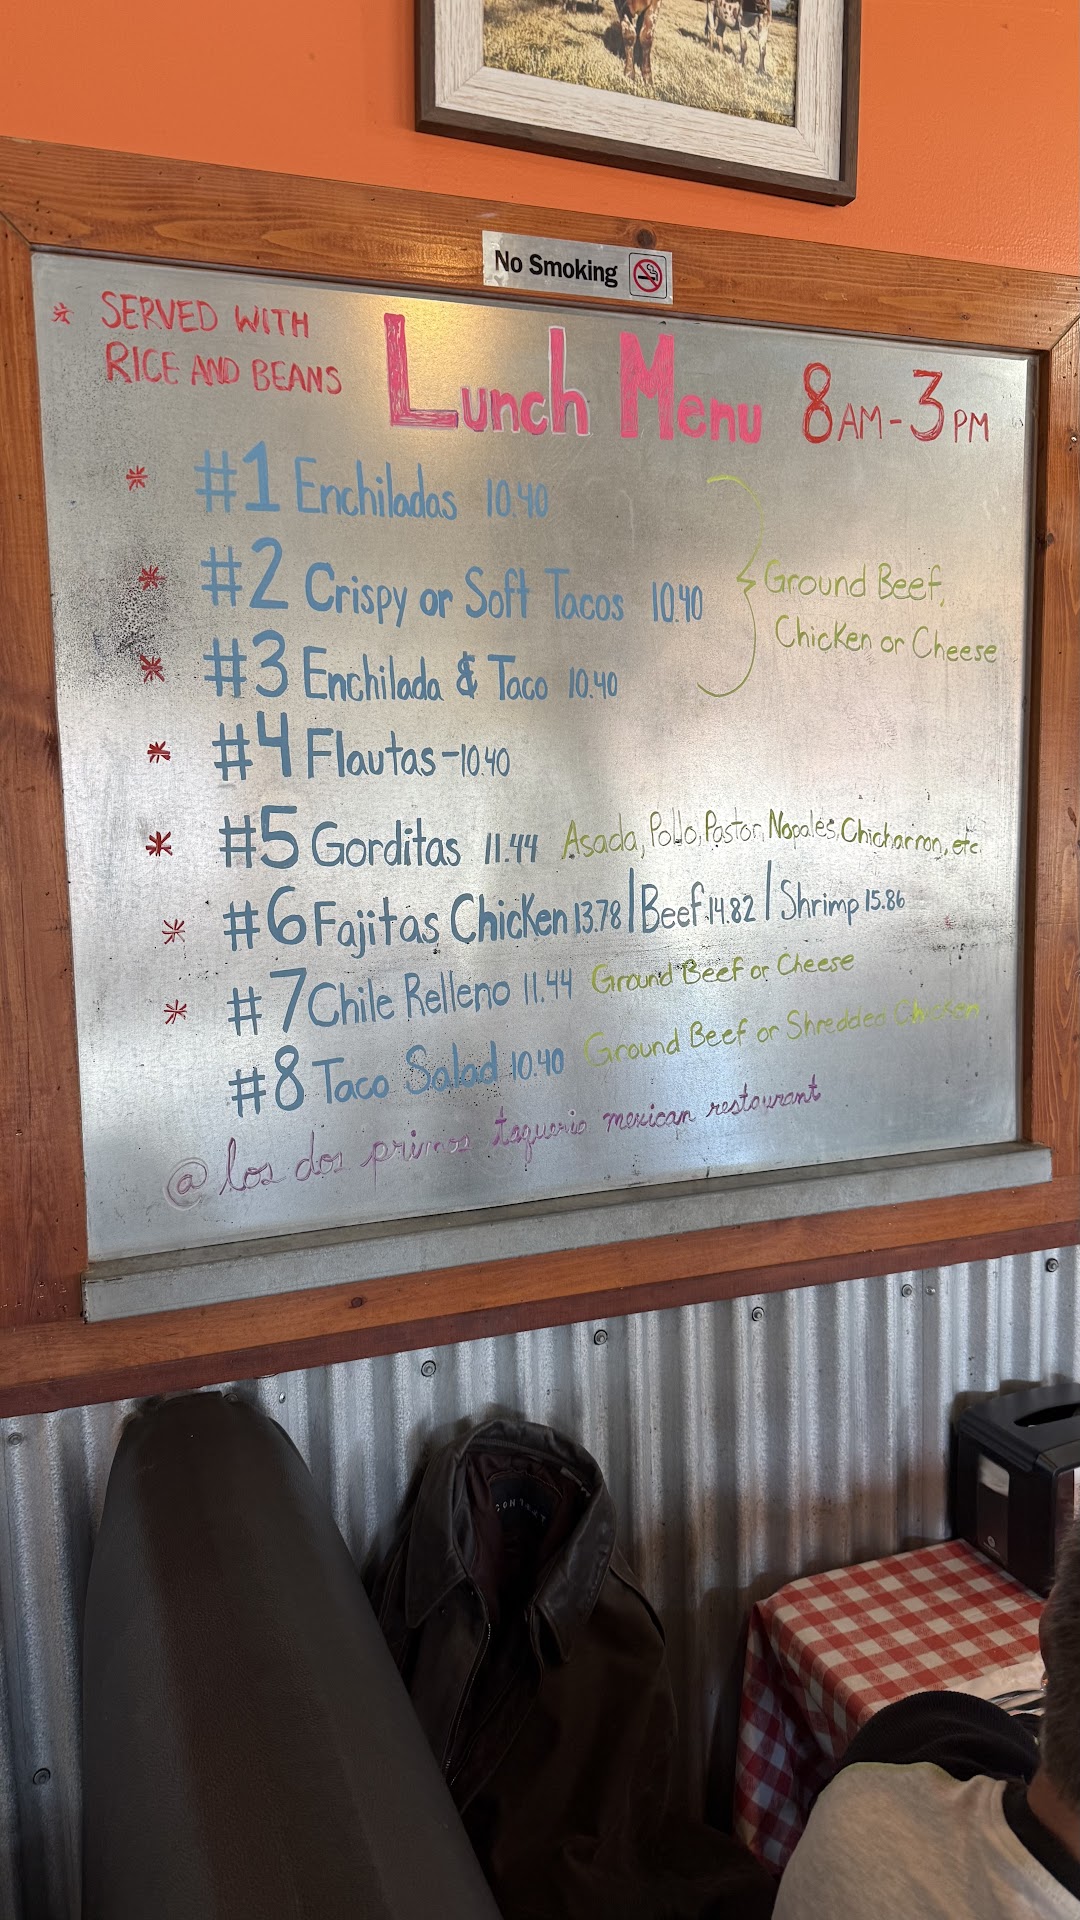 No Smoking
* SERVED WITH
RICE AND BEANS
Lunch Menu 8AM-3PM
* #1 Enchiladas 10.40
* #2 Crispy or Soft Tacos 10.40
* #3 Enchilada & Taco 10.40
Ground Beef,
Chicken or Cheese
* #4 Flautas - 10.40
* #5 Gorditas 11.44 Asada, Pollo, Pastor, Nopales, Chicharron, etc
* #6 Fajitas Chicken 13.78 | Beef 14.82 | Shrimp 15.86
* #7 Chile Relleno 11.44 Ground Beef or Cheese
#8 Taco Salad 10.40 Ground Beef or Shredded Chicken
@ los dos primos taqueria mexican restaurant